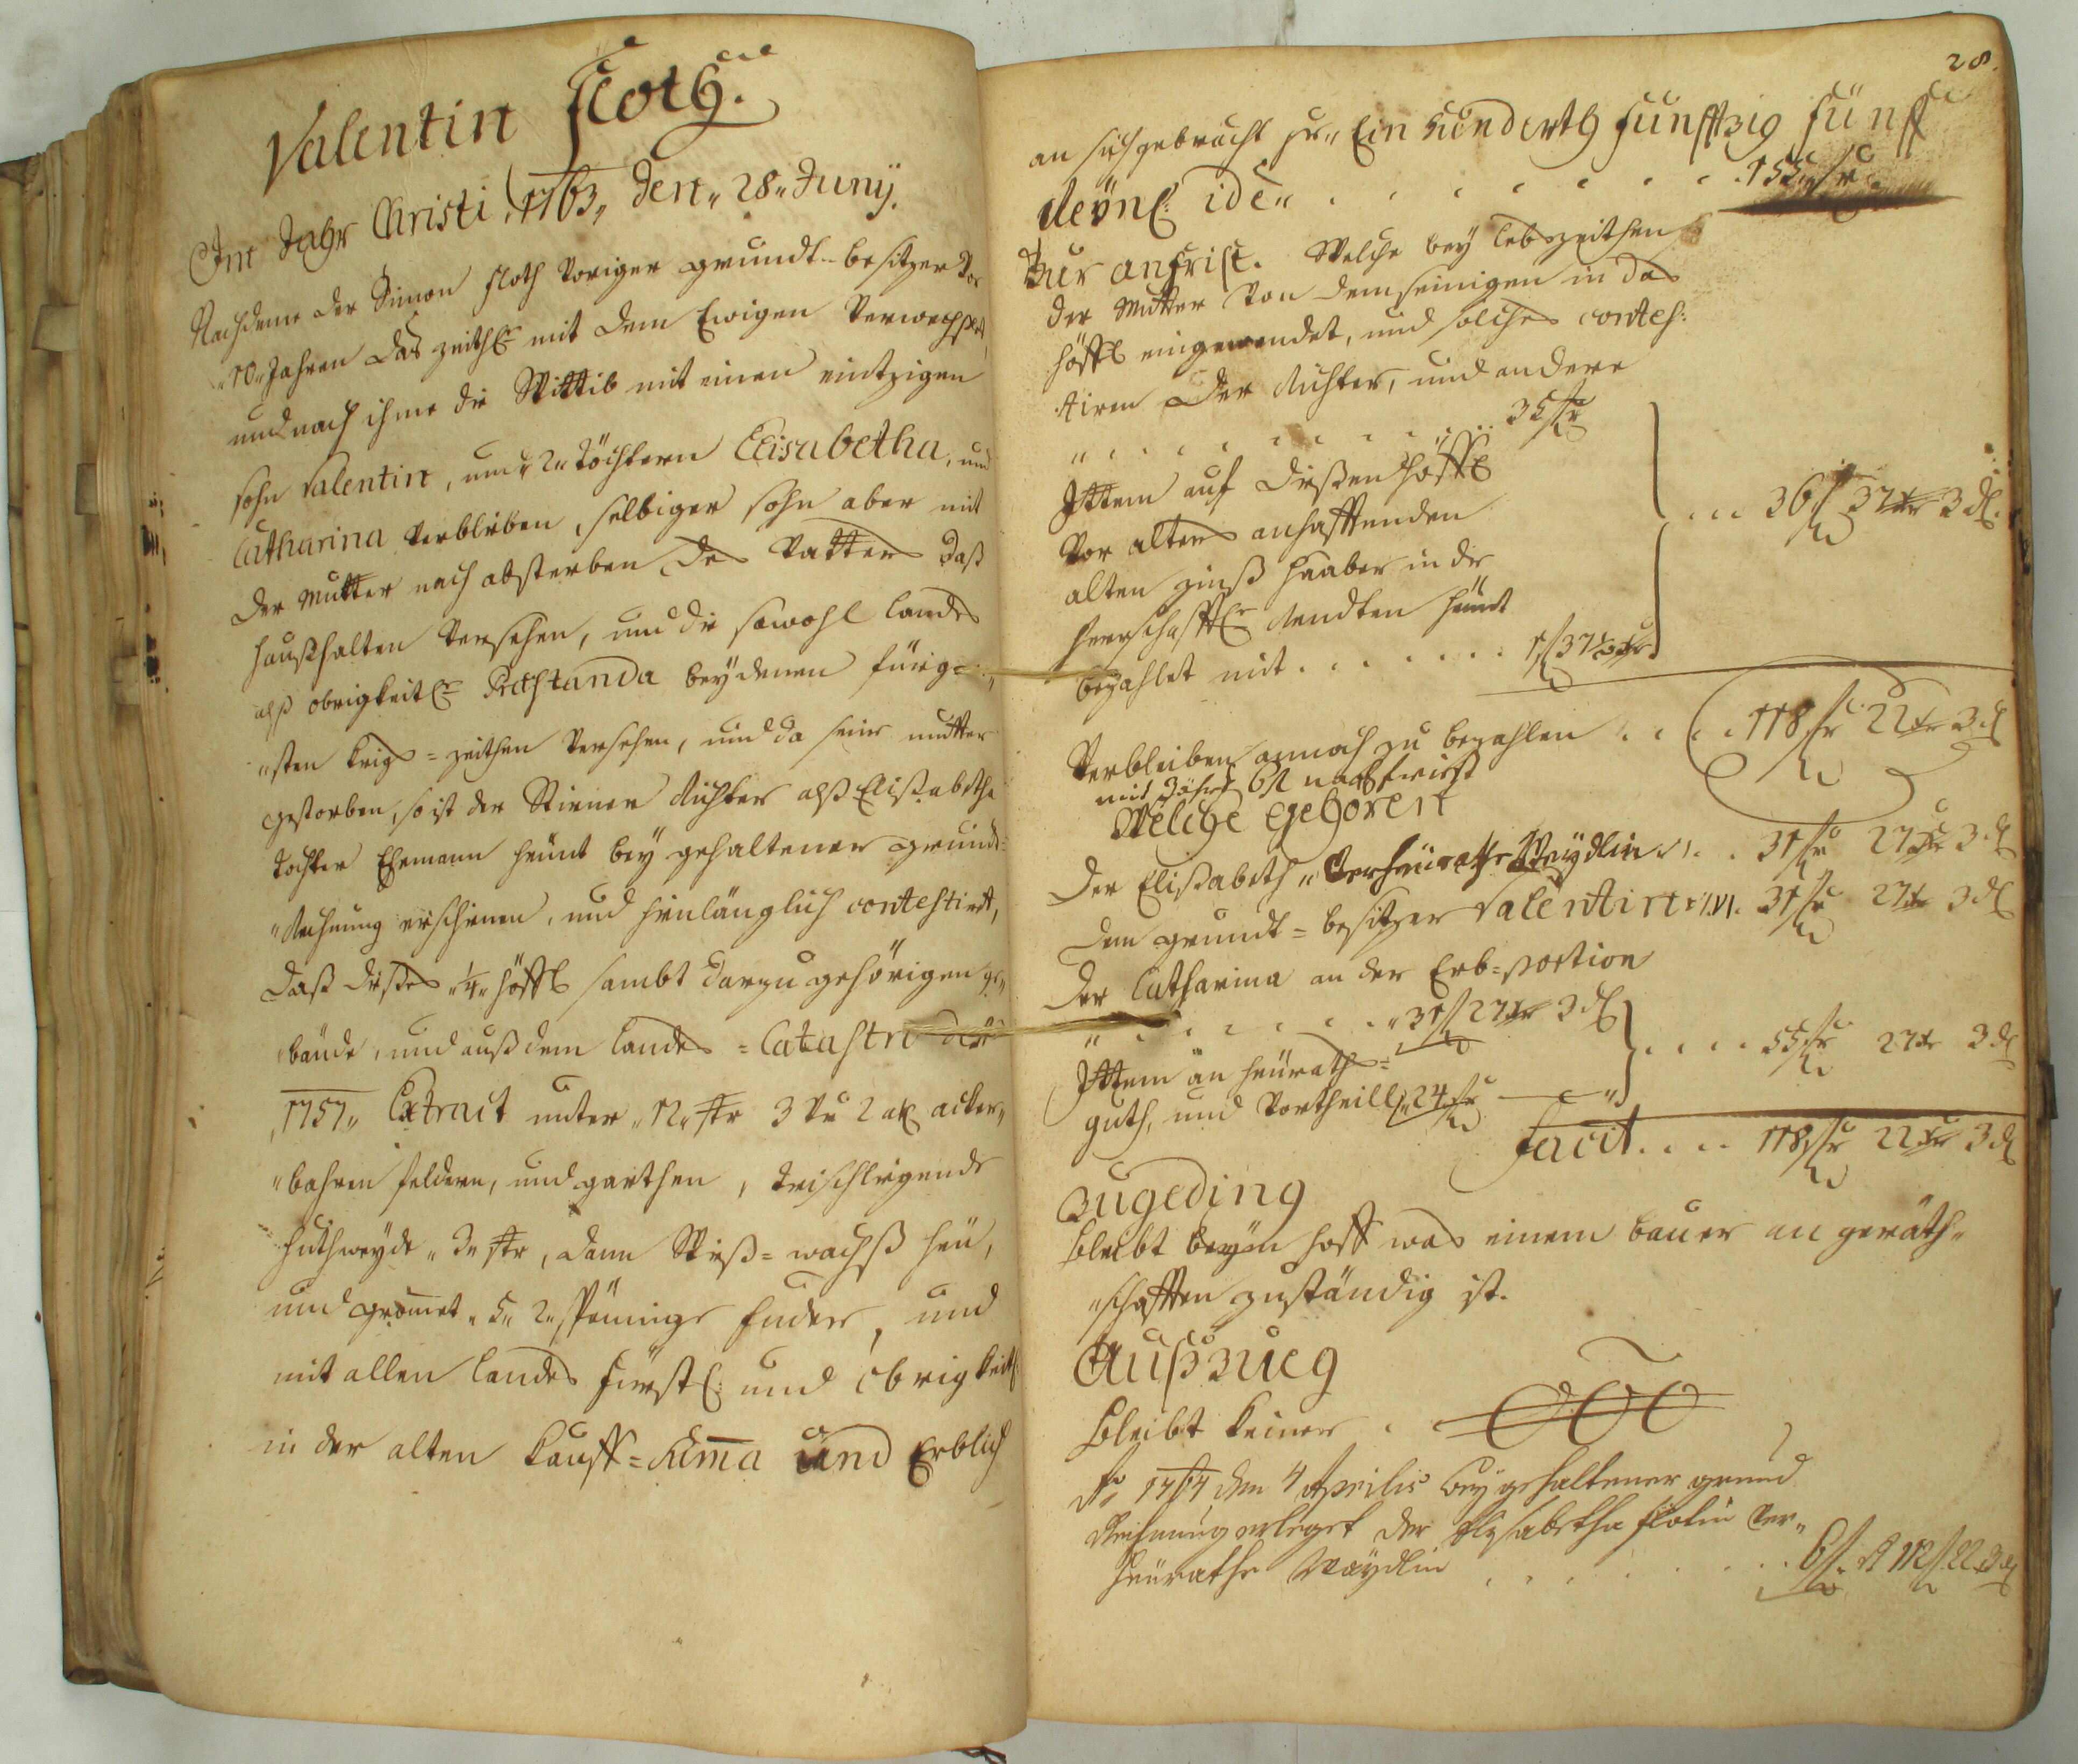 Valentin Floth.
Im Jahr Christi 1763 den 28 Juny.
Nachdeme der Simon Floth Voriger grundt-besitzer Vor
10 Jahren das zeitl: mit dem Ewigen Verwechslet,
und nach ihme die Wittib mit einen eintzigen
sohn Valentin, und 2 töchtern Elisabetha, und
Catharina Verblieben, selbiger sohn aber mit
der Mutter nach absterben des Vatters daß
haußhalten Versehen, und die sowohl landes
alß obrigkeitl: Præstanda bey denen
sten krigs=zeithen Versehen, und da seine mutter
gestorben, so ist der Richter alß Elisabetha
tochter Ehemann heünt bey gehaltener grundt=
Rechnung erschienen, und hinlänglich contestirt,
daß dießes 1/4 höffl sambt darzu gehörigen ge
bäude, und auß dem landes=Catastri de
1757 Extract unter 12 str 3 Vr 2 acker
bahren feldern, und garthen, trischligende
huthweyde 3 str, dann Wieß=wachß heü,
und gromet 5 2 spänige fuder, und
mit allen landes fürstl: und Obrigkeitl:
in der alten Kauff=Summa und Erblich
28.
an sich gebracht pr Ein hunderth funffzig fünff
Reynl: ide . . . . . . . 155 fr
Zur anfrist. Welche bey lebszeithen
der Mutter Von dem seinigen in das
höffl eingewendet, und solches contes:
tiren der Richter, und andere
. . . . . . . 35 fr
Ittem auf dießen höffl
Vor alters anhafftenden
alten zinß haaber in die
herrschafftl: Rendten heünt
bezahlet mit . . . . . . . 1 f 37 xr
. . . 36 f 37 xr 3 d.
Verbleiben annoch zu bezahlen . . . 118 fr 22 xr 3 d
mit Jährl 6 f nachfrist
Welche gehören
Der Elisabeth Verheürathe Waydlin . . 31 fr 27 xr 3 d
dem grundt=besitzer Valentin . 31 fr 27 xr 3 d
der Catharina an der Erb=portion
. . . . . . 31 f 27 xr 3 d
Ittem an heürath=
guth, und Vortheill 24 fr
. . . . 55 fr 27 xr 3 d
Facit . . . . 118 fr 22 xr 3 d
Zugeding
bleibt beym hoff was einem bauer an geräth
schafften zuständig ist.
Außzueg
bleibt keiner .
Ao 1764 den 4 Aprilis bey gehaltener grund
Rechnung erleget der Elysabetha Flotin Ver
heürathe Waydlin . . . . . . 6 f. R 112 f 22 3 d